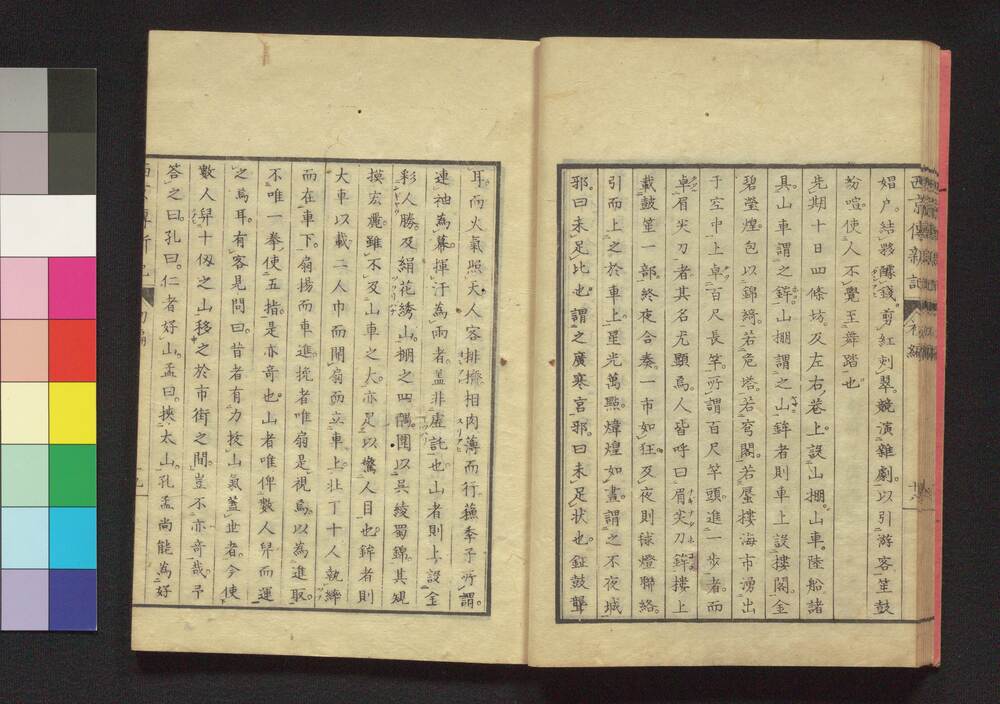 娼戶。結夥醵錢。剪紅刺翠。競演雜劇。以引游客笙鼓
紛喧使人不覺至舞踏也。
先期十日四條坊及左右巷上設山棚。山車。陸船諸
具。山車謂之鉾山棚謂之山鉾者則車上設樓閣。金
碧瑩煌。包以錦綺若危塔。若穹閣。若蜃樓海市湧出
于空中上卓百尺長竿。所謂百尺竿頭進一步者。而
卓眉尖刀者其名尤顯焉人皆呼曰眉尖刀鉾樓上
載鼓笙一部。終夜合奏。一市如狂。及夜則綵燈聯絡。
引而上之於車上。星光萬點。煒煌如晝。謂之不夜城
邪。曰未足比也。謂之廣寒宮邪。曰未足狀也。鉦鼓聾
耳。而火氣照天人客排擠相肉薄而行蘇季子所謂。
連袖為幕。揮汗為雨者。蓋非虛託也山者則上設金
彩人勝。及絹花綉山。棚之四隅。圍以吳綾蜀錦。其規
摸宏麗。雖不及山車之大。亦足以驚人目也。鉾者則
大車以載二人巾而開扇而立車上。壯丁十人執綍
而在車下。扇揚而車進。挽者唯扇是視焉。以為進取。
不唯一拳使五指。是亦奇也。山者唯俾數人舁而運
之焉耳。有客見問曰。昔者有力拔山氣蓋世者。今使
數人舁十仭之山移之於市街之間。豈不亦奇哉。予
答之曰。孔曰。仁者好山。孟曰。挾太山。孔孟尚能為好